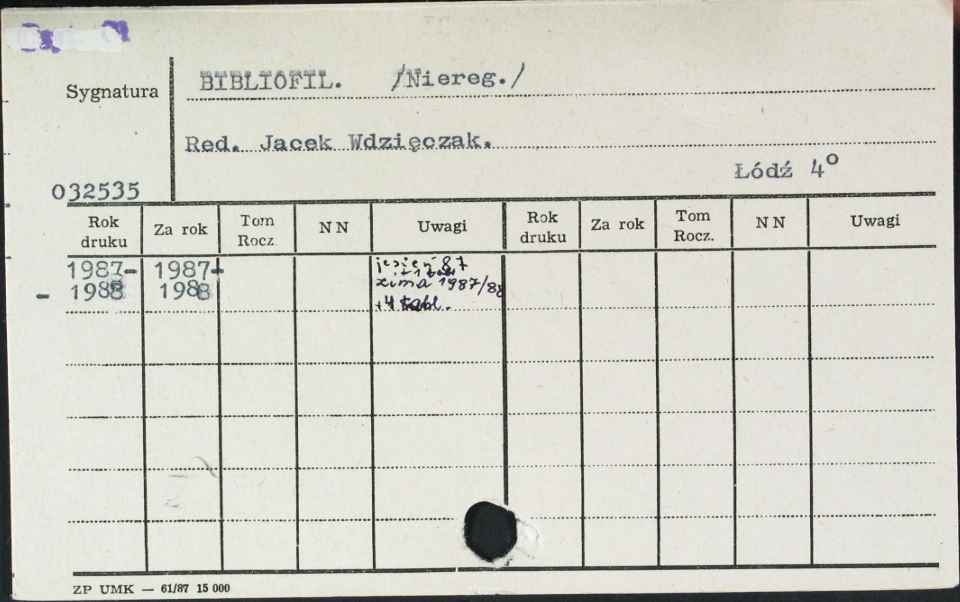 Sygnatura
BIBLIOFIL. /Niereg./
Red. Jacek Wdzięczak.
Łódź 4º
032535
Rok druku Za rok Tom Rocz. N N Uwagi Rok druku Za rok Tom Rocz. N N Uwagi
1987- 1987+ jesień 87
- 1988 1988 zima 1987/88
+4 tabl.
ZP UMK — 61/87 15 000